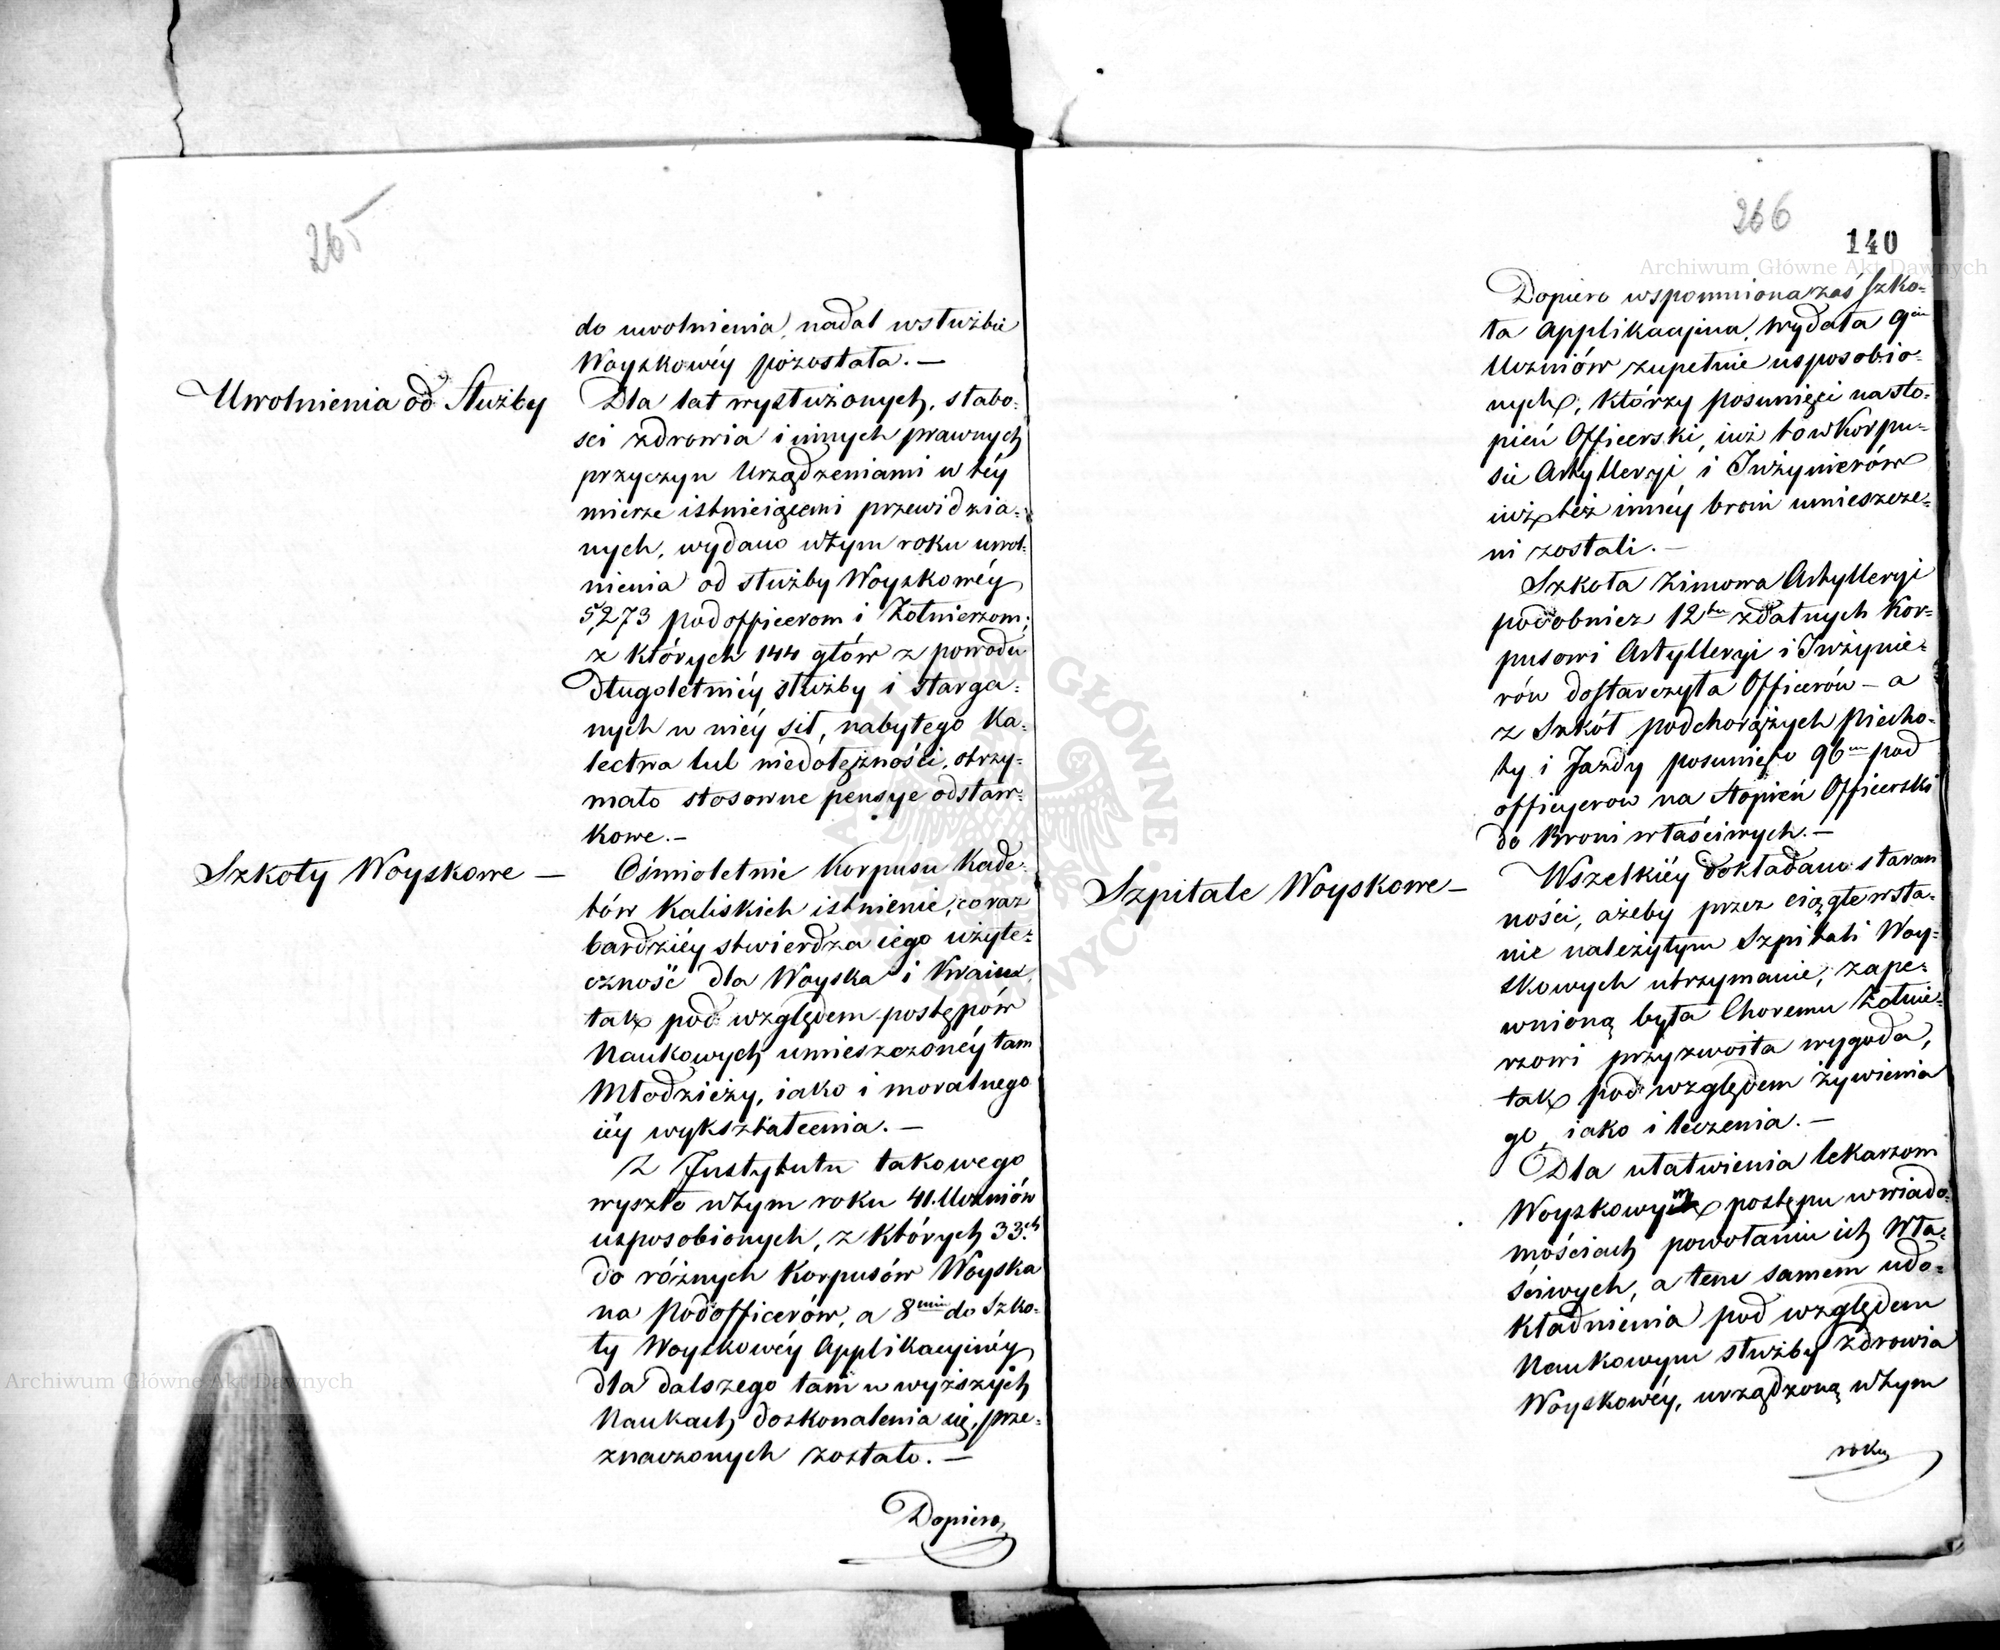 265
do uwolnienia, nadal w służbie
Woyskowéy pozostała. —
Uwolnienia od Służby
Dla lat wysłużonych, słabo-
sci zdrowia i innych prawnych
przyczyn Urządzeniami w téy
mierze istnieiącemi przewidzia-
nych, wydano w tym roku uwol-
nienia od służby Woyskowéy
5,273 podofficerom i Żołnierzom;
z których 144 głów z powodu
długoletniéy służby i starga-
nych w niéy sił, nabytego ka-
lectwa lub niedołężności, otrzy-
mało stosowne pensye odstaw-
kowe. —
Szkoły Woyskowe —
Ośmioletnie Korpusu Kade-
tów Kaliskich istnienie, coraz
bardziéy stwierdza iego użyte-
czność dla Woyska i Kraiu,
tak pod względem postępów
Naukowych umieszczonéy tam
Młodzieży, iako i moralnego
iéy wykształcenia. —
Z Instytutu takowego
wyszło w tym roku 41. Uczniów
usposobionych, z których 33.ch
do różnych Korpusów Woyska
na Podofficerów, a 8miu do Szko-
ły Woyskowéy Applikacyinéy
dla dalszego tam w wyższych
Naukach doskonalenia się, prze-
znaczonych zostało. —
Dopiero
266
140
Dopiero wspomniona zaś Szko-
ła Applikacyina, wydała 9ciu
Uczniów zupełnie usposobio-
nych, którzy posunięci na sto-
pień Officerski, iuż to w Korpu-
sie Artylleryi i Inżynierów
iuż też innéy broni umieszcze-
ni zostali. —
Szkoła Zimowa Artylleryi
podobnież 12tu zdatnych Kor-
pusowi Artylleryi i Inżynie-
rów dostarczyła Officerów — a
z Szkół podchorążych Piecho-
ty i Jazdy posunięto 96ciu pod
officyerow na stopień Officerski
do Broni właściwych. —
Szpitale Woyskowe —
Wszelkiéy dokładano staran
ności, ażeby przez ciągłe w sta-
nie należytym Szpitali Woy-
skowych utrzymanie, zape-
wnioną była Choremu Żołnie-
rzowi przyzwoita wygoda,
tak pod względem żywienia
go, iako i leczenia. —
Dla ułatwienia lekarzom
Woyskowym postępu w wiado-
mościach powołaniu ich Wła-
ściwych, a tem samem udo-
kładnienia pod względem
Naukowym służby zdrowia
Woyskowéy, urządzoną w tym
roku
Archiwum Główne Akt Dawnych
Archiwum Główne Akt Dawnych